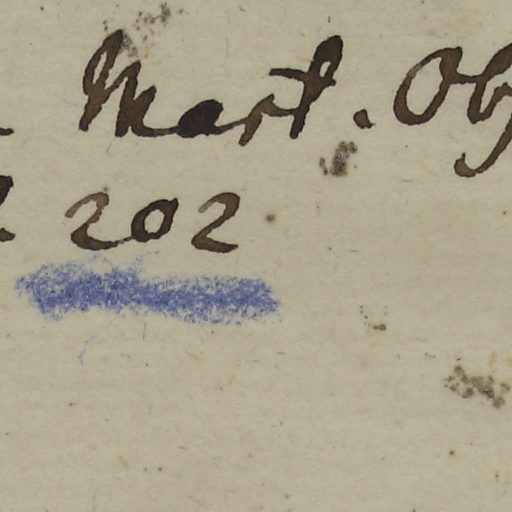 Mart. Obs
202